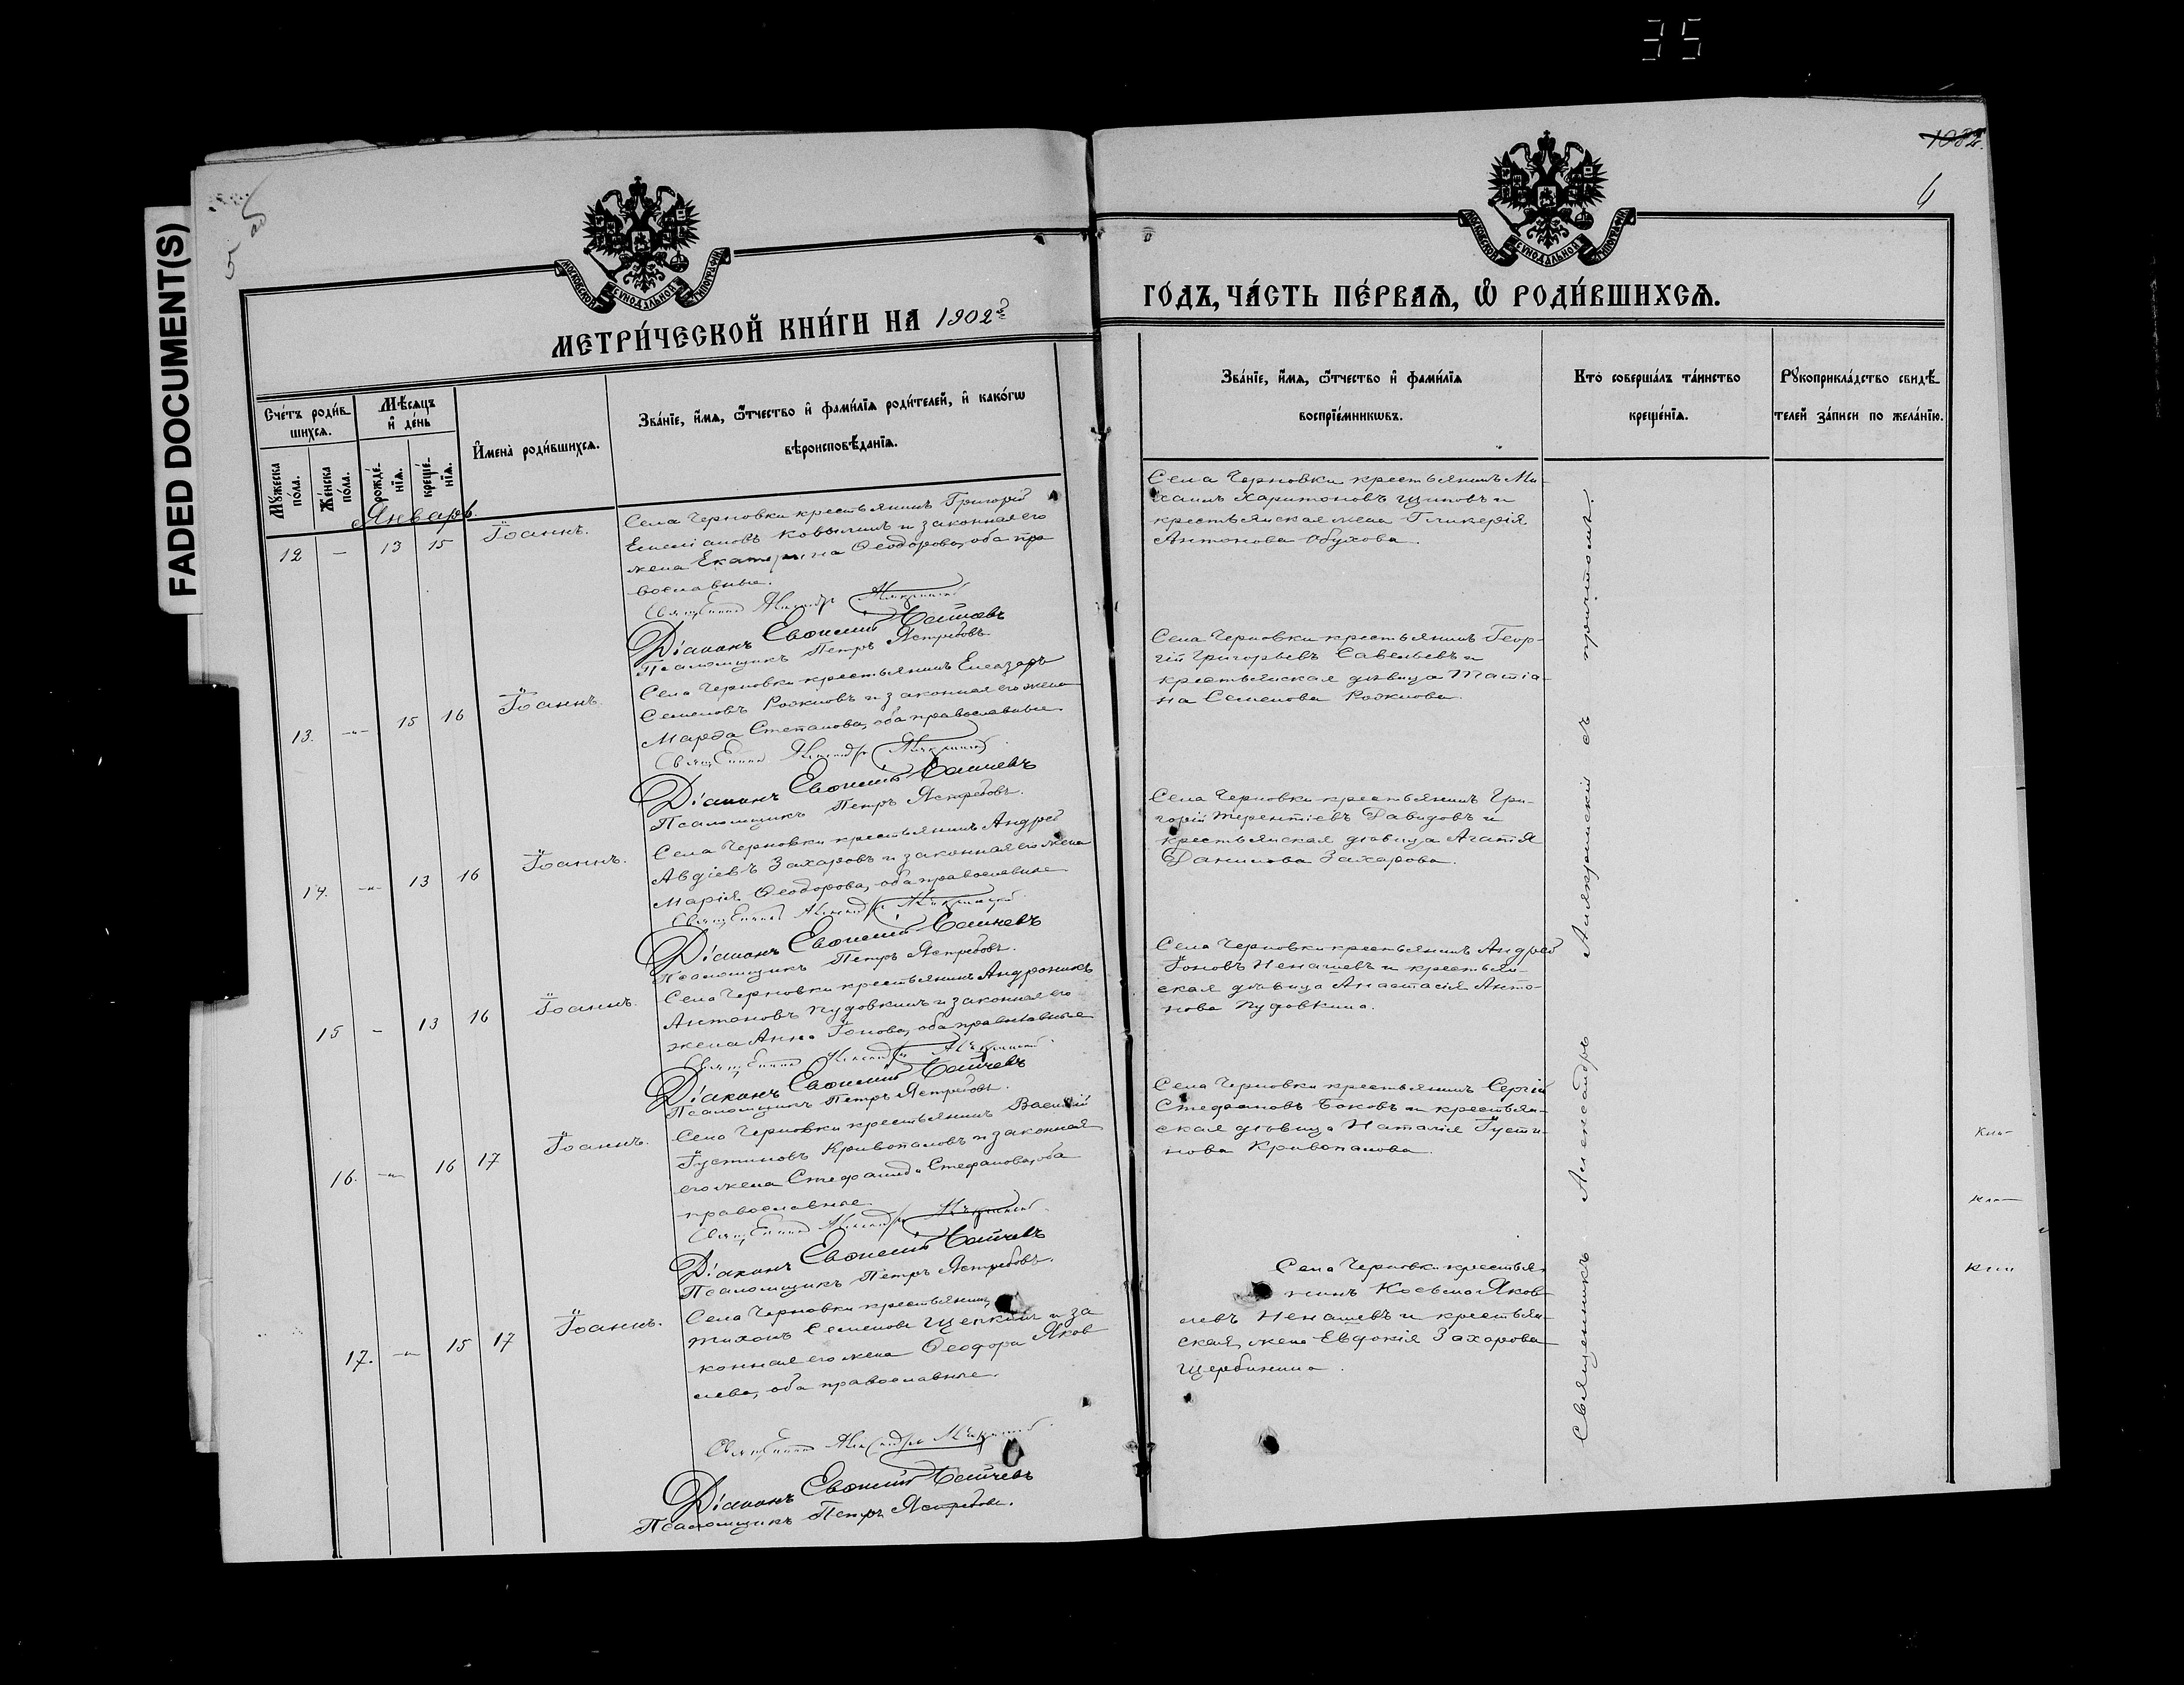 35
FADED DOCUMENT(S)
1032.
6
МОСКОВСКОЙ СѴНОДАЛЬНОЙ ТИПОГРАФІИ
МОСКОВСКОЙ СѴНОДАЛЬНОЙ ТИПОГРАФІИ
МЕТРИ́ЧЕСКОЙ КНИ́ГИ НА 1902й
ГО́ДЪ, ЧА́СТЬ ПЕ́РВАѦ, Ѡ҆ РОДИ́ВШИХСѦ.
Сче́тъ роди́в-
шихсѧ.
Мꙋ́жеска
по́ла.
Же́нска
по́ла.
Мѣ́сѧцъ
и҆ де́нь
рожде́-
нїѧ.
креще́-
нїѧ.
И҆мена̀ роди́вшихсѧ.
Зва́нїе, и҆́мѧ, ѻ҆́тчество и҆ фамѝлїѧ роди́телей, и҆ како́гѡ
вѣроисповѣ́данїѧ.
Зва́нїе, и҆́мѧ, ѻ҆́тчество и҆ фамѝлїѧ
воспрїе́мникѡвъ.
Кто̀ соверша́лъ та́инство
креще́нїѧ.
Рꙋкоприкла́дство свидѣ́-
телей за́писи по жела́нїю.
Январь.
12 — 13 15 Іоаннъ.
Села Черновки крестьянинъ Григорій
Емеліановъ Ковылинъ и законная его
жена Екатерина Ѳеодорова, оба пра
вославные.
Священникъ Александръ
Діаконъ Евѳимій
Псаломщикъ Петръ Ястребовъ
Села Черновки крестьянинъ Ми-
хаилъ Харитоновъ Щиповъ и
крестьянская жена Гликерія
Антонова Обухова.
13. —„— 15 16 Іоаннъ.
Села Черновки крестьянинъ Елеазаръ
Семеновъ Рожновъ и законная его жена
Марѳа Степанова, оба православные
Священникъ Александръ
Діаконъ Евѳимій
Псаломщикъ Петръ Ястребовъ.
Села Черновки крестьянинъ Геор-
гій Григорьевъ Савельевъ и
крестьянская дѣвица Татіа-
на Семенова Рожнова.
14. —„— 13 16 Іоаннъ.
Села Черновки крестьянинъ Андрей
Авдіевъ Захаровъ и законная его жена
Марія Ѳеодорова, оба православные
Священникъ Александръ
Діаконъ Евѳимій
Псаломщикъ Петръ Ястребовъ.
Села Черновки крестьянинъ Гри-
горій Терентіевъ Давидовъ и
крестьянская дѣвица Агатія
Данилова Захарова.
15 — 13 16 Іоаннъ.
Села Черновки крестьянинъ Андроникъ
Антоновъ Пудовкинъ и законная его
жена Анна Іонова, оба православные
Священникъ Александръ
Діаконъ Евѳимій
Псаломщикъ Петръ Ястребовъ.
Села Черновки крестьянинъ Андрей
Іоновъ Ненашевъ и крестьян-
ская дѣвица Анастасія Анто-
нова Пудовкина.
16. —„— 16 17 Іоаннъ.
Села Черновки крестьянинъ Василій
Іустиновъ Кривопаловъ и законная
его жена Стефанида Стефанова, оба
православные.
Священникъ Александръ
Діаконъ Евѳимій
Псаломщикъ Петръ Ястребовъ.
Села Черновки крестьянинъ Сергій
Стефановъ Боковъ и крестьян-
ская дѣвица Наталія Іусти-
нова Кривопалова.
17. —„— 15 17 Іоаннъ.
Села Черновки крестьянинъ
Тихонъ Семеновъ Щепкинъ и за
конная его жена Ѳеодора Яков
лева, оба православные.
Священникъ Александръ
Діаконъ Евѳимій
Псаломщикъ Петръ Ястребовъ.
Села Черновки крестья-
нинъ Косьма Яков-
левъ Ненашевъ и крестьян-
ская жена Евдокія Захарова
Щербинина.
Священникъ Александръ съ причтомъ.